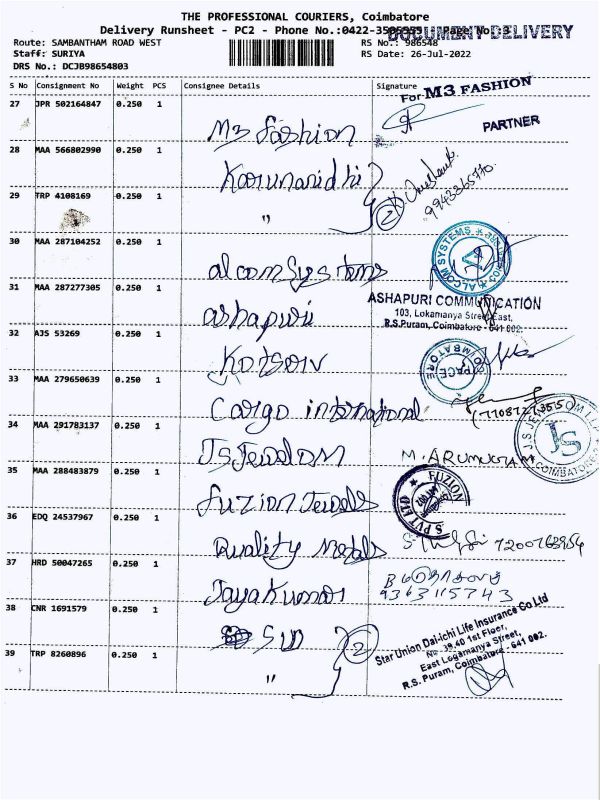 THE PROFESSIONAL COURIERS, Coimbatore
Delivery Runsheet - PC2 - Phone No.:0422- Page No. 3
DOCUMENT DELIVERY
Route: SAMBANTHAM ROAD WEST RS No.: 986548
Staff: SURIYA RS Date: 26-Jul-2022
DRS No.: DCJB98654803
S No Consignment No Weight PCS Consignee Details Signature
For M3 FASHION
27 JPR 502164847 0.250 1 M3 fashion
PARTNER
28 MAA 566802990 0.250 1 Karunanidhi
29 TRP 4108169 0.250 1 " 2
30 MAA 287104252 0.250 1 alcom Systems
ALCOM SYSTEMS
31 MAA 287277305 0.250 1 ashapuri
ASHAPURI COMMUNICATION
103, Lokamanya Street East,
R.S.Puram, Coimbatore - 641 002.
32 AJS 53269 0.250 1
PACE COIMBATORE
33 MAA 279650639 0.250 1 Cargo international
34 MAA 291783137 0.250 1 JS Jewalom M. ARUMUGAM
JS COIMBATORE
35 MAA 288483879 0.250 1 fuzion Jewels
FUZION
36 EDQ 24537967 0.250 1 Quality Metals
37 HRD 50047265 0.250 1 Jayakumar
9363115743
38 CNR 1691579 0.250 1 SUD 2
Star Union Dai-ichi Life Insurance Co Ltd
No 39,40 1st Floor,
East Logamanya Street,
R.S. Puram, Coimbatore - 641 002.
39 TRP 8260896 0.250 1 "